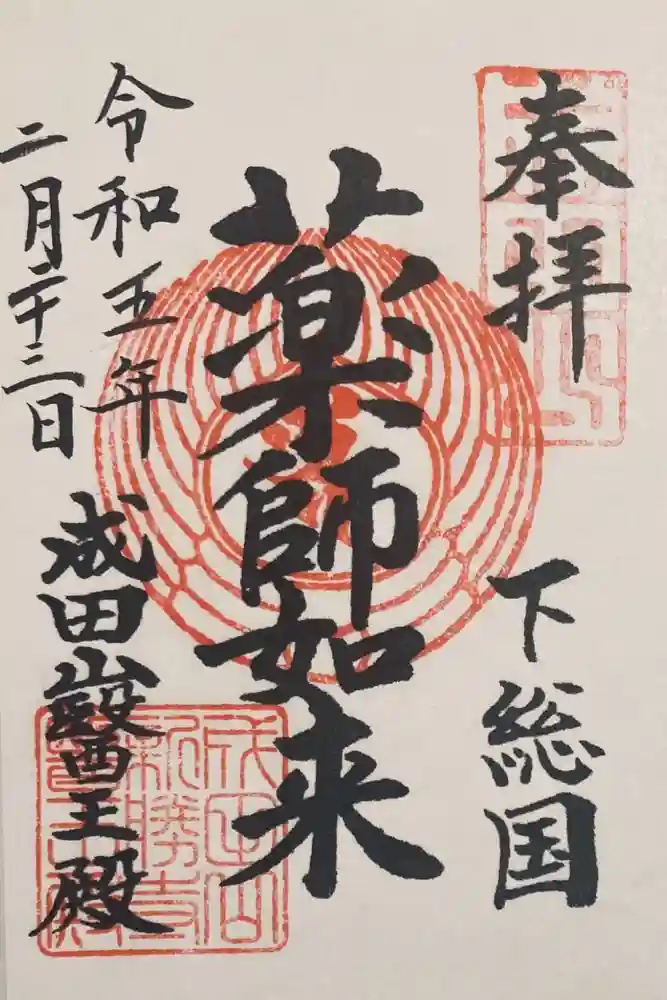 奉拝
下総国
薬師如来
令和五年
二月二十三日
成田山醫王殿
成田山
新勝寺